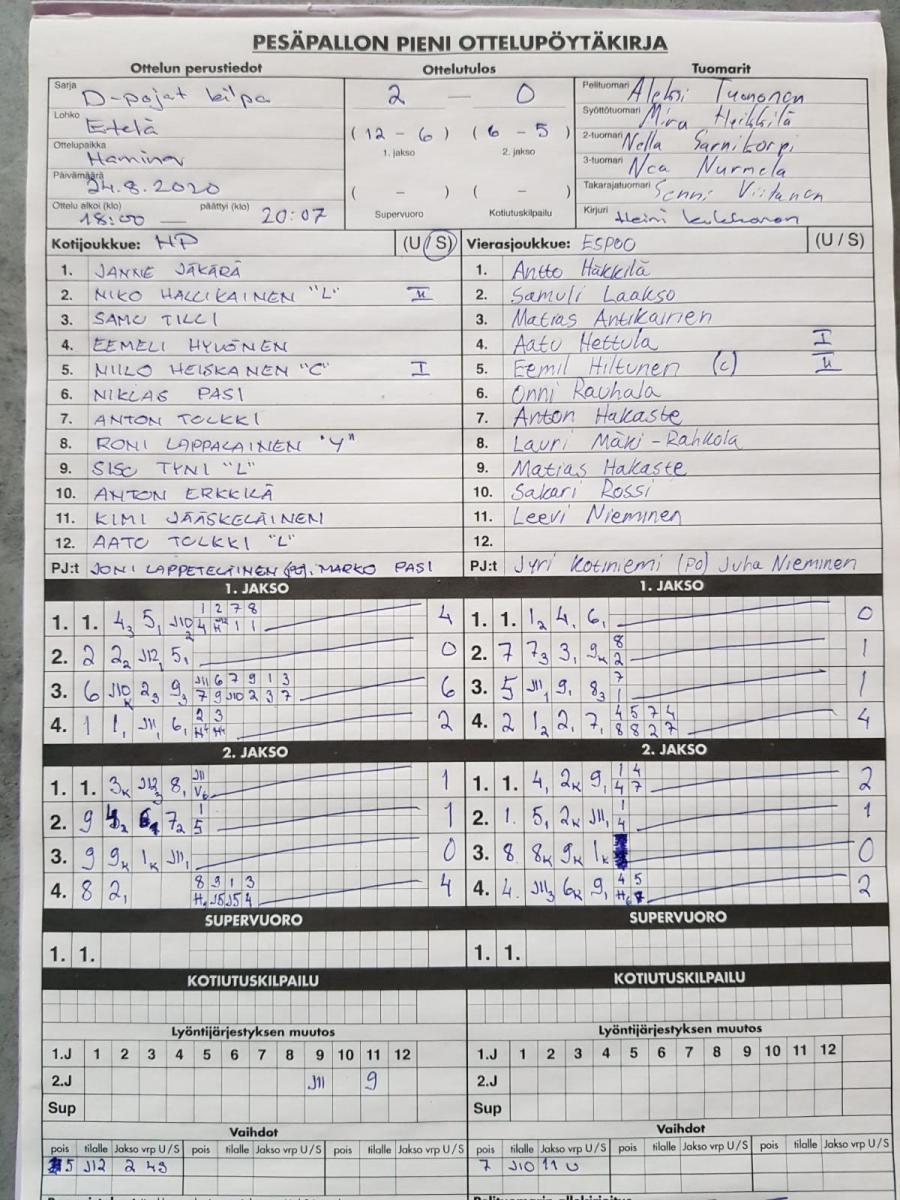 PESÄPALLON PIENI OTTELUPÖYTÄKIRJA
Ottelun perustiedot Ottelutulos Tuomarit
Sarja D-pojat kilpa 2 — 0 Pelituomari Aleksi Tuononen
Lohko Etelä ( 12 - 6 ) ( 6 - 5 ) Syöttötuomari Mira Heikkilä
Ottelupaikka Hamina 1. jakso 2. jakso 2-tuomari Nella Sarnikorpi
Päivämäärä 24.8.2020 ( - ) ( - ) 3-tuomari Nea Nurmela
Ottelu alkoi (klo) 18:00 — päättyi (klo) 20:07 Supervuoro Kotiutuskilpailu Takarajatuomari Senni Viitanen
Kirjuri Heini
Kotijoukkue: HP (U / S) Vierasjoukkue: ESPOO (U / S)
1. JANNE JÄKÄRÄ 1. Antto Häkkilä
2. NIKO HALLIKAINEN "L" II 2. Samuli Laakso
3. SAMU TILLI 3. Matias Antikainen
4. EEMELI HYVÖNEN 4. Aatu Hettula I
5. NIILO HEISKANEN "C" I 5. Eemil Hiltunen (c) II
6. NIKLAS PASI 6. Onni Rauhala
7. ANTON TOLKKI 7. Anton Hakaste
8. RONI LAPPALAINEN "Y" 8. Lauri Mäki-Rahkola
9. SISU TYNI "L" 9. Matias Hakaste
10. ANTON ERKKILÄ 10. Sakari Rossi
11. KIMI JÄÄSKELÄINEN 11. Leevi Nieminen
12. AATO TOLKKI "L" 12.
PJ:t JONI LAPPETELÄINEN (PO), MARKO PASI PJ:t Jyri Kotiniemi (PO) Juha Nieminen
1. JAKSO 1. JAKSO
1. 1. 4₃ 5₁ J10₂ 1 2 7 8 4 1. 1. 1₂ 4₁ 6₁ 0
2. 2 2₂ J12₁ 5₁ 0 2. 7 7₃ 3₁ 9K 8 2 1
3. 6 J10K 2₃ 9₃ J11 6 7 9 1 3 7 9 J10 2 3 7 6 3. 5 J11₁ 9₁ 8₃ 7 1 1
4. 1 1₁ J11₁ 6₁ 2 3 2 4. 2 1₂ 2₁ 7₁ 4 5 7 4 8 8 2 7 4
2. JAKSO 2. JAKSO
1. 1. 3K J12₃ 8₁ J11 V₆ 1 1. 1. 4₁ 2K 9₁ 1 4 4 7 2
2. 9 7₂ 1 5 1 2. 1. 5₁ 2K J11₁ 1 4 1
3. 9 9K 1K J11₁ 0 3. 8 8K 9K 1K 0
4. 8 2₁ 8 9 1 3 H₁ J5 J5 4 4 4. 4. J11₃ 6K 9₁ 4 5 2
SUPERVUORO SUPERVUORO
1. 1. 1. 1.
KOTIUTUSKILPAILU KOTIUTUSKILPAILU
Lyöntijärjestyksen muutos Lyöntijärjestyksen muutos
1.J 1 2 3 4 5 6 7 8 9 10 11 12 1.J 1 2 3 4 5 6 7 8 9 10 11 12
2.J J11 9 2.J
Sup Sup
Vaihdot Vaihdot
pois tilalle Jakso vrp U/S pois tilalle Jakso vrp U/S pois tilalle Jakso vrp U/S pois tilalle Jakso vrp U/S pois tilalle Jakso vrp U/S pois tilalle Jakso vrp U/S
5 J12 2 4S 7 J10 1 1 U